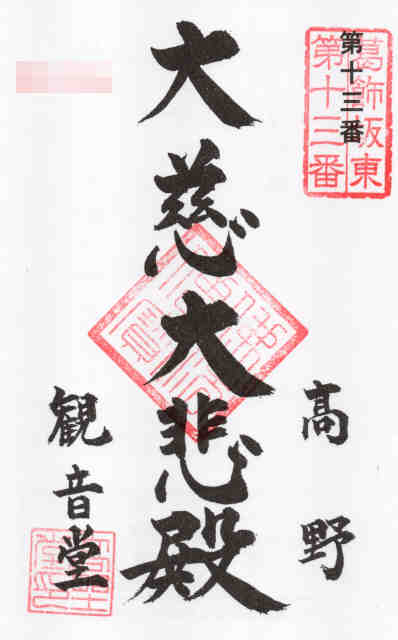 葛飾坂東
第十三番
第十三番
大慈大悲殿
高野
観音堂